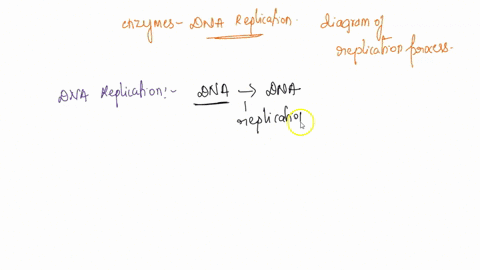 enzymes - DNA Replication. diagram of
replication process.
DNA Replication:- DNA → DNA
replication